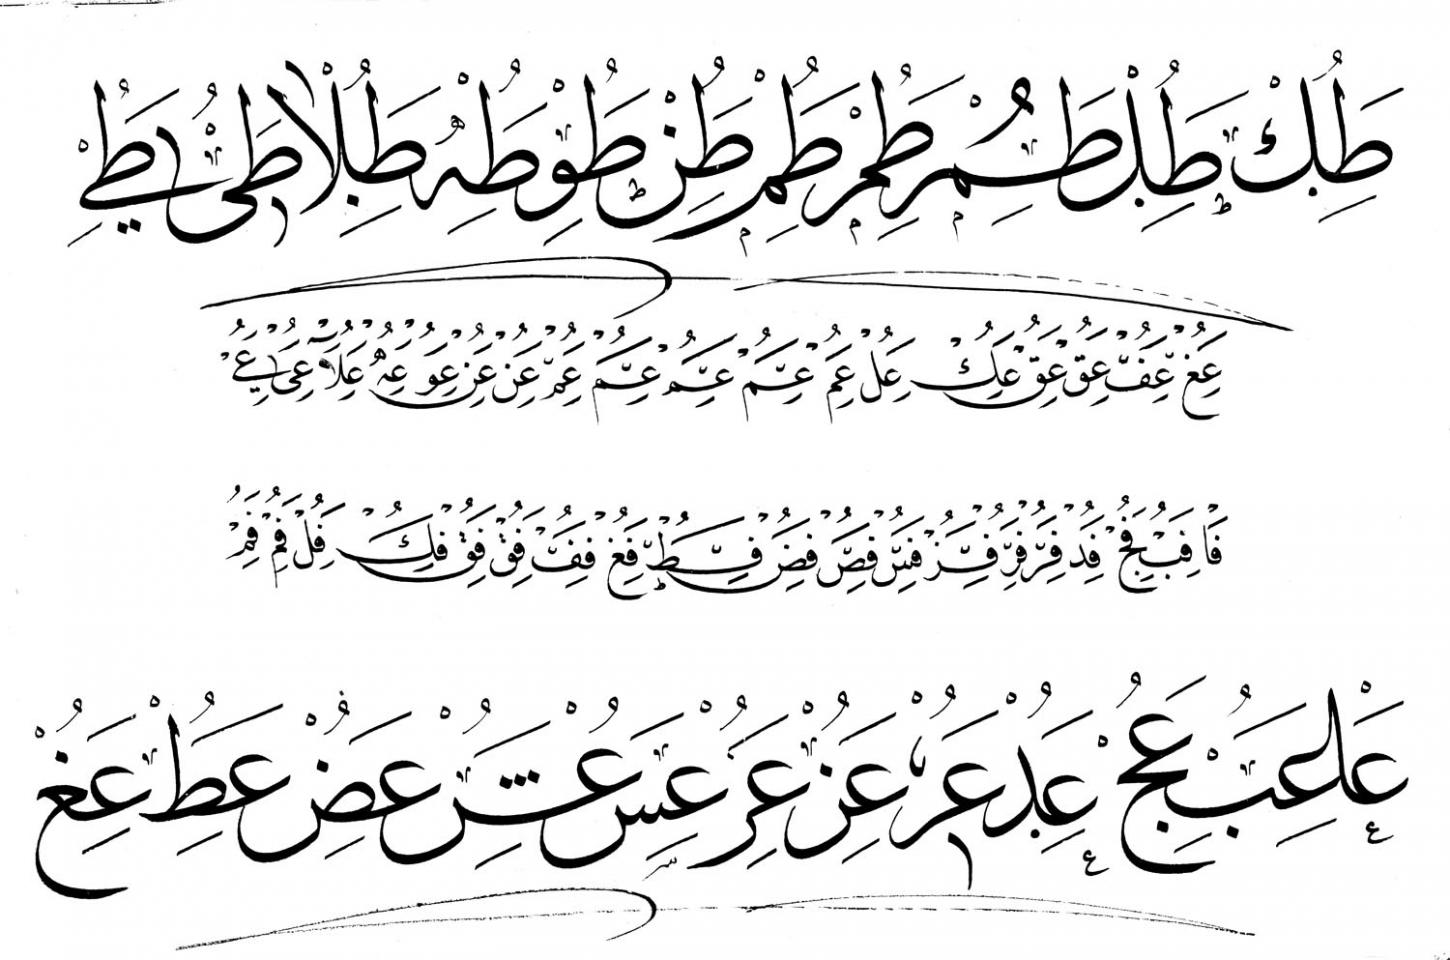 طك طل طم طم طم طن طو طه طلا طى طي
عغ عف عق عق عك عل عم عم عم عم عم عن عن عو عه علا عى عي
فا فب فج فد فر فر فر فس فص فض فط فغ فف فق فق فك فل فم فم
عا عب عج عد عر عر عر عس عش عص عط عغ